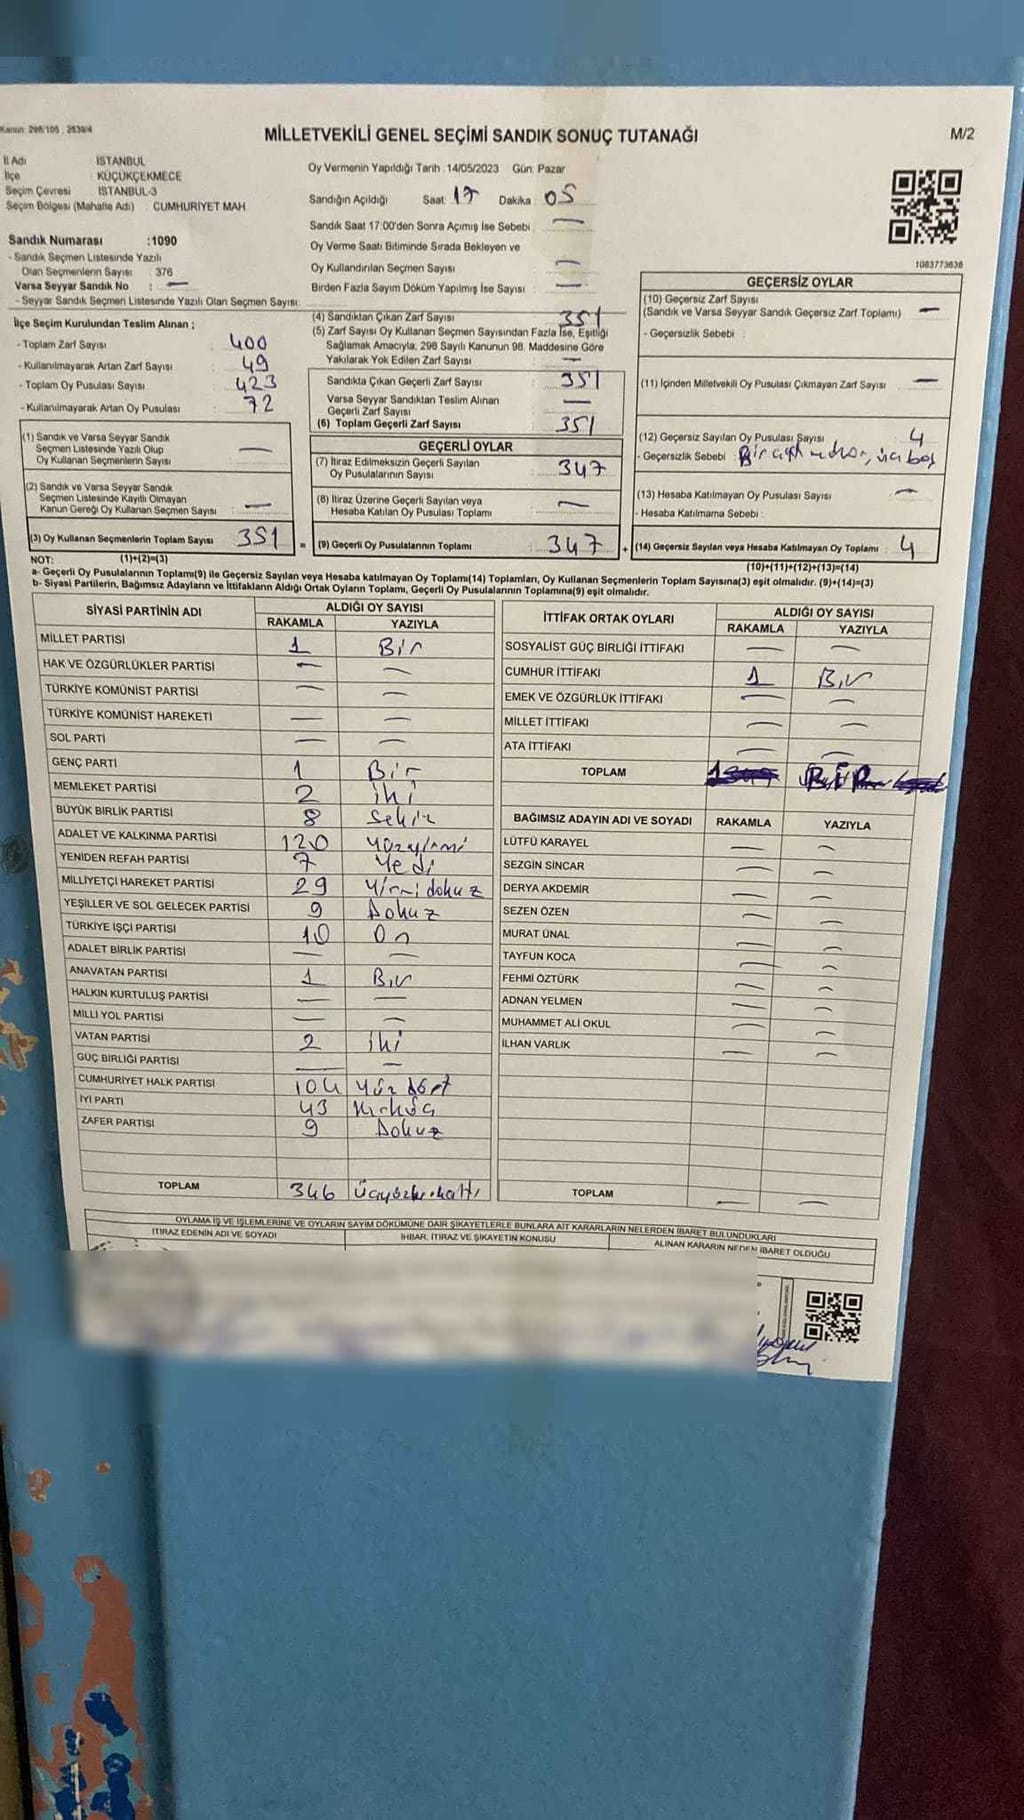 Kanun: 298/105 , 2839/4
MİLLETVEKİLİ GENEL SEÇİMİ SANDIK SONUÇ TUTANAĞI
M/2
İl Adı İSTANBUL
İlçe KÜÇÜKÇEKMECE
Seçim Çevresi İSTANBUL-3
Seçim Bölgesi (Mahalle Adı) : CUMHURİYET MAH.
Oy Vermenin Yapıldığı Tarih : 14/05/2023 Gün: Pazar
Sandığın Açıldığı Saat: 17 Dakika : 05
Sandık Saat 17:00'den Sonra Açılmış İse Sebebi : —
Oy Verme Saati Bitiminde Sırada Bekleyen ve
Oy Kullandırılan Seçmen Sayısı : —
Birden Fazla Sayım Döküm Yapılmış İse Sayısı : —
Sandık Numarası :1090
- Sandık Seçmen Listesinde Yazılı
Olan Seçmenlerin Sayısı : 376
Varsa Seyyar Sandık No : —
- Seyyar Sandık Seçmen Listesinde Yazılı Olan Seçmen Sayısı:
İlçe Seçim Kurulundan Teslim Alınan ;
- Toplam Zarf Sayısı : 400
- Kullanılmayarak Artan Zarf Sayısı : 49
- Toplam Oy Pusulası Sayısı : 423
- Kullanılmayarak Artan Oy Pusulası : 72
(1) Sandık ve Varsa Seyyar Sandık
Seçmen Listesinde Yazılı Olup
Oy Kullanan Seçmenlerin Sayısı : —
(2) Sandık ve Varsa Seyyar Sandık
Seçmen Listesinde Kayıtlı Olmayan
Kanun Gereği Oy Kullanan Seçmen Sayısı : —
(3) Oy Kullanan Seçmenlerin Toplam Sayısı : 351
(4) Sandıktan Çıkan Zarf Sayısı : 351
(5) Zarf Sayısı Oy Kullanan Seçmen Sayısından Fazla İse, Eşitliği
Sağlamak Amacıyla; 298 Sayılı Kanunun 98. Maddesine Göre
Yakılarak Yok Edilen Zarf Sayısı : —
Sandıkta Çıkan Geçerli Zarf Sayısı : 351
Varsa Seyyar Sandıktan Teslim Alınan
Geçerli Zarf Sayısı : —
(6) Toplam Geçerli Zarf Sayısı : 351
GEÇERLİ OYLAR
(7) İtiraz Edilmeksizin Geçerli Sayılan
Oy Pusulalarının Sayısı : 347
(8) İtiraz Üzerine Geçerli Sayılan veya
Hesaba Katılan Oy Pusulası Toplamı : —
= (9) Geçerli Oy Pusulalarının Toplamı : 347
1083773636
GEÇERSİZ OYLAR
(10) Geçersiz Zarf Sayısı
(Sandık ve Varsa Seyyar Sandık Geçersiz Zarf Toplamı) : —
- Geçersizlik Sebebi :
(11) İçinden Milletvekili Oy Pusulası Çıkmayan Zarf Sayısı : —
(12) Geçersiz Sayılan Oy Pusulası Sayısı : 4
- Geçersizlik Sebebi :
(13) Hesaba Katılmayan Oy Pusulası Sayısı : —
- Hesaba Katılmama Sebebi :
+ (14) Geçersiz Sayılan veya Hesaba Katılmayan Oy Toplamı : 4
NOT: (1)+(2)=(3)
(10)+(11)+(12)+(13)=(14)
a- Geçerli Oy Pusulalarının Toplamı(9) ile Geçersiz Sayılan veya Hesaba katılmayan Oy Toplamı(14) Toplamları, Oy Kullanan Seçmenlerin Toplam Sayısına(3) eşit olmalıdır. (9)+(14)=(3)
b- Siyasi Partilerin, Bağımsız Adayların ve İttifakların Aldığı Ortak Oyların Toplamı, Geçerli Oy Pusulalarının Toplamına(9) eşit olmalıdır.
SİYASİ PARTİNİN ADI ALDIĞI OY SAYISI
RAKAMLA YAZIYLA
MİLLET PARTİSİ 1 Bir
HAK VE ÖZGÜRLÜKLER PARTİSİ — —
TÜRKİYE KOMÜNİST PARTİSİ — —
TÜRKİYE KOMÜNİST HAREKETİ — —
SOL PARTİ — —
GENÇ PARTİ 1 Bir
MEMLEKET PARTİSİ 2 iki
BÜYÜK BİRLİK PARTİSİ 8 Sekiz
ADALET VE KALKINMA PARTİSİ 120 Yüzyirmi
YENİDEN REFAH PARTİSİ 7 Yedi
MİLLİYETÇİ HAREKET PARTİSİ 29 Yirmi dokuz
YEŞİLLER VE SOL GELECEK PARTİSİ 9 Dokuz
TÜRKİYE İŞÇİ PARTİSİ 10 On
ADALET BİRLİK PARTİSİ — —
ANAVATAN PARTİSİ 1 Bir
HALKIN KURTULUŞ PARTİSİ — —
MİLLİ YOL PARTİSİ — —
VATAN PARTİSİ 2 iki
GÜÇ BİRLİĞİ PARTİSİ — —
CUMHURİYET HALK PARTİSİ 104 Yüz dört
İYİ PARTİ 43 Kırküç
ZAFER PARTİSİ 9 Dokuz
TOPLAM 346 Üçyüzkırkaltı
İTTİFAK ORTAK OYLARI ALDIĞI OY SAYISI
RAKAMLA YAZIYLA
SOSYALİST GÜÇ BİRLİĞİ İTTİFAKI — —
CUMHUR İTTİFAKI 1 Bir
EMEK VE ÖZGÜRLÜK İTTİFAKI — —
MİLLET İTTİFAKI — —
ATA İTTİFAKI — —
TOPLAM 1 BİR
BAĞIMSIZ ADAYIN ADI VE SOYADI RAKAMLA YAZIYLA
LÜTFÜ KARAYEL — —
SEZGİN SİNCAR — —
DERYA AKDEMİR — —
SEZEN ÖZEN — —
MURAT ÜNAL — —
TAYFUN KOCA — —
FEHMİ ÖZTÜRK — —
ADNAN YELMEN — —
MUHAMMET ALİ OKUL — —
İLHAN VARLIK — —
TOPLAM — —
OYLAMA İŞ VE İŞLEMLERİNE VE OYLARIN SAYIM DÖKÜMÜNE DAİR ŞİKAYETLERLE BUNLARA AİT KARARLARIN NELERDEN İBARET BULUNDUKLARI
İTİRAZ EDENİN ADI VE SOYADI İHBAR, İTİRAZ VE ŞİKAYETİN KONUSU ALINAN KARARIN NEDEN İBARET OLDUĞU